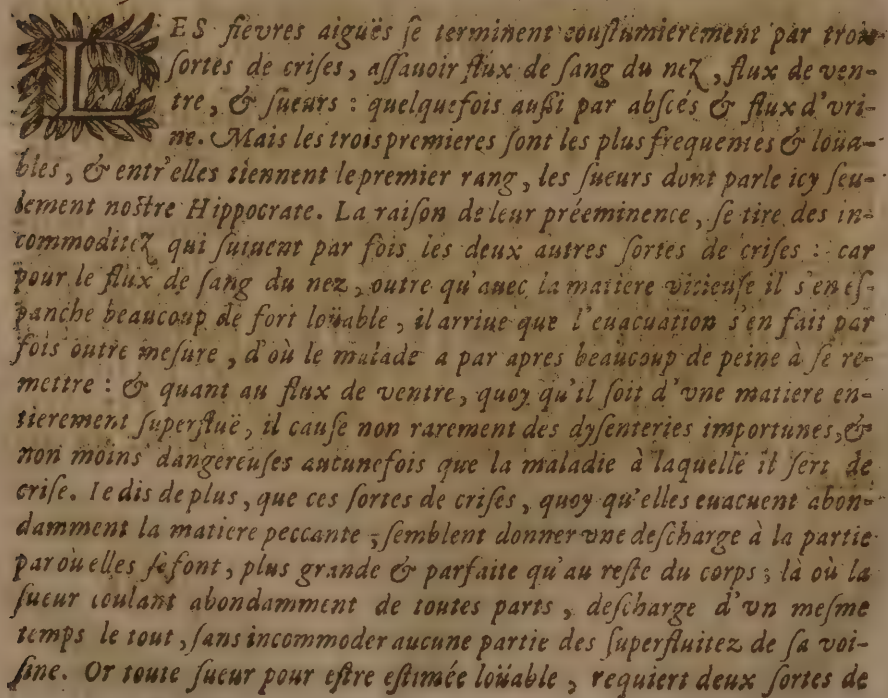 LES fievres aiguës ſe terminent couſtumierement par trois
ſortes de criſes, aſſauoir flux de ſang du nez, flux de ven-
tre, & ſueurs : quelquefois außi par abſcés & flux d'vri-
ne. Mais les trois premieres ſont les plus frequentes & loüa-
bles, & entr'elles tiennent le premier rang, les ſueurs dont parle icy ſeu-
lement noſtre Hippocrate. La raiſon de leur préeminence, ſe tire des in-
commoditez qui ſuiuent par fois les deux autres ſortes de criſes : car
pour le flux de ſang du nez, outre qu'auec la matiere vicieuſe il s'en eſ-
panche beaucoup de fort loüable, il arriue que l'euacuation s'en fait par
fois outre meſure, d'où le malade a par apres beaucoup de peine à ſe re-
mettre : & quant au flux de ventre, quoy qu'il ſoit d'vne matiere en-
tierement ſuperfluë, il cauſe non rarement des dyſenteries importunes, &
non moins dangereuſes aucunefois que la maladie à laquelle il ſert de
criſe. Ie dis de plus, que ces ſortes de criſes, quoy qu'elles euacuent abon-
damment la matiere peccante, ſemblent donner vne deſcharge à la partie
par où elles ſe font, plus grande & parfaite qu'au reſte du corps ; là où la
ſueur coulant abondamment de toutes parts, deſcharge d'vn meſme
temps le tout, ſans incommoder aucune partie des ſuperfluitez de ſa voi-
ſine. Or toute ſueur pour eſtre eſtimée loüable, requiert deux ſortes de